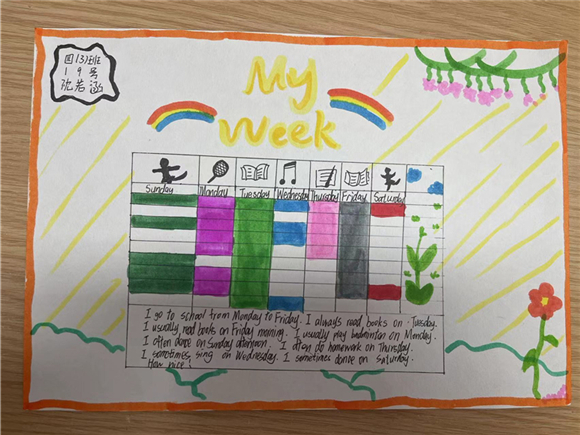 四(3)班
19号
沈若涵
My
Week
Sunday Monday Tuesday Wednesday Thursday Friday Saturday
I go to school from Monday to Friday. I always read books on Tuesday.
I usually read books on Friday morning. I usually play badminton on Monday.
I often dance on Sunday afternoon. I often do homework on Thursday.
I sometimes sing on Wednesday. I sometimes dance on Saturday.
How nice!